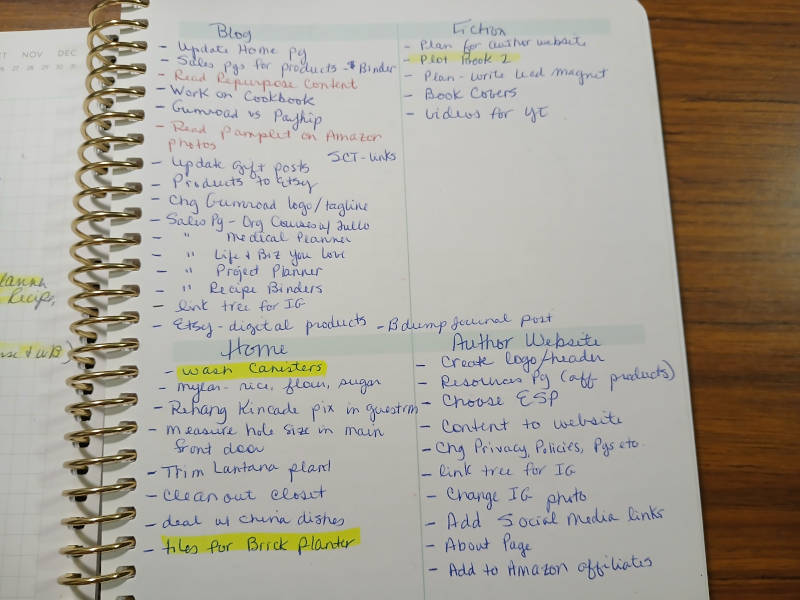 OCT NOV DEC
Blog
- Update Home pg
- Sales pgs for products & Binder
- Read Repurpose Content
- Work on Cookbook
- Gumroad vs Payhip
- Read Pamplet on Amazon
photos
SCT-links
- Update gift posts
- Products to Etsy
- Chg Gumroad logo/tagline
- Sales Pg - Org Courses w/ Jullo
- " Medical Planner
- " Life & Biz You Love
- " Project Planner
- " Recipe Binders
- link tree for IG
- Etsy - digital products - Bdump Journal post
Fiction
- Plan for author website
- Plot Book 2
- Plan - write lead magnet
- Book Covers
- Videos for YT
Home
- wash canisters
- mylar - rice, flour, sugar
- Rehang Kincade pix in guestrm
- measure hole size in main
front door
- Trim Lantana plant
- Clean out closet
- deal w/ china dishes
- tiles for Brick planter
Author Website
- Create logo/header
- Resources Pg (aff products)
- Choose ESP
- Content to website
- Chg Privacy, Policies, Pgs etc.
- link tree for IG
- Change IG photo
- Add Social Media links
- About Page
- Add to Amazon affiliates